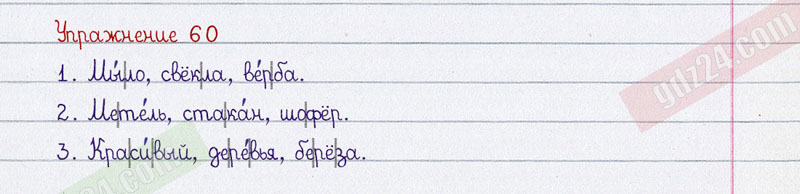 Упражнение 60
1. Мы́|ло, свёк|ла, ве́р|ба.
2. Ме|те́ль, ста|ка́н, шо|фёр.
3. Кра|си́|вый, де|ре́|вья, бе|рё|за.
gdz24.com
gdz24.com